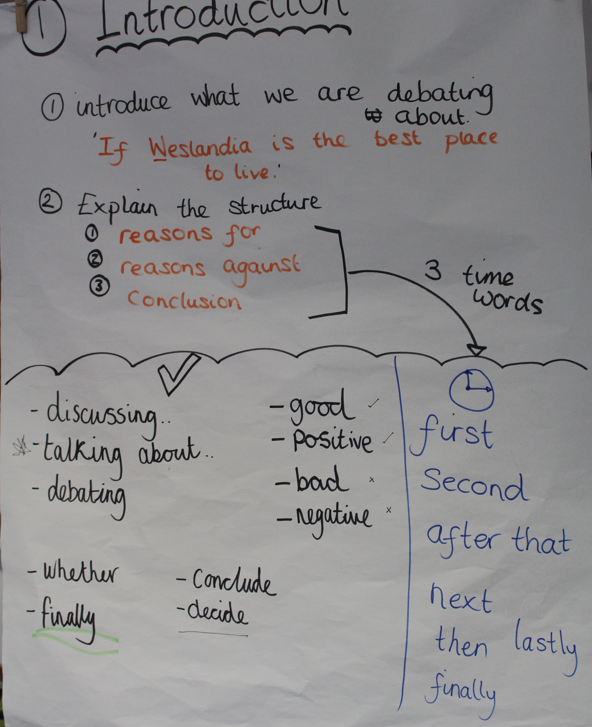 ① Introduction
① introduce what we are debating
about.
'If Weslandia is the best place
to live.'
② Explain the structure
① reasons for
② reasons against
③ Conclusion
3 time
words
- discussing..
- talking about..
- debating
- good ✓
- positive ✓
- bad x
- negative x
- whether
- finally
- Conclude
- decide
first
Second
after that
next
then lastly
finally